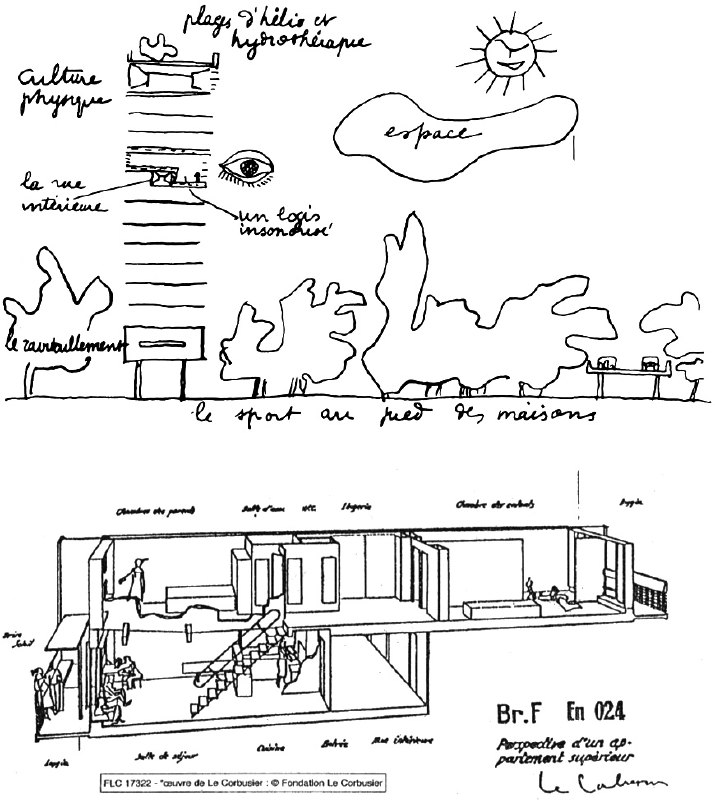 plages d'hélio et
hydrothérapie
culture
physique
espace
la rue
intérieure
un logis
insonorisé
le ravitaillement
le sport au pied des maisons
Chambre des parents
Salle d'eau
W.C.
lingerie
Chambre des enfants
loggia
Brise
Soleil
Loggia
Salle de séjour
Cuisine
Entrée
Rue intérieure
Br.F En 024
Perspective d'un ap-
partement supérieur
Le Corbusier
FLC 17322 - "œuvre de Le Corbusier : © Fondation Le Corbusier